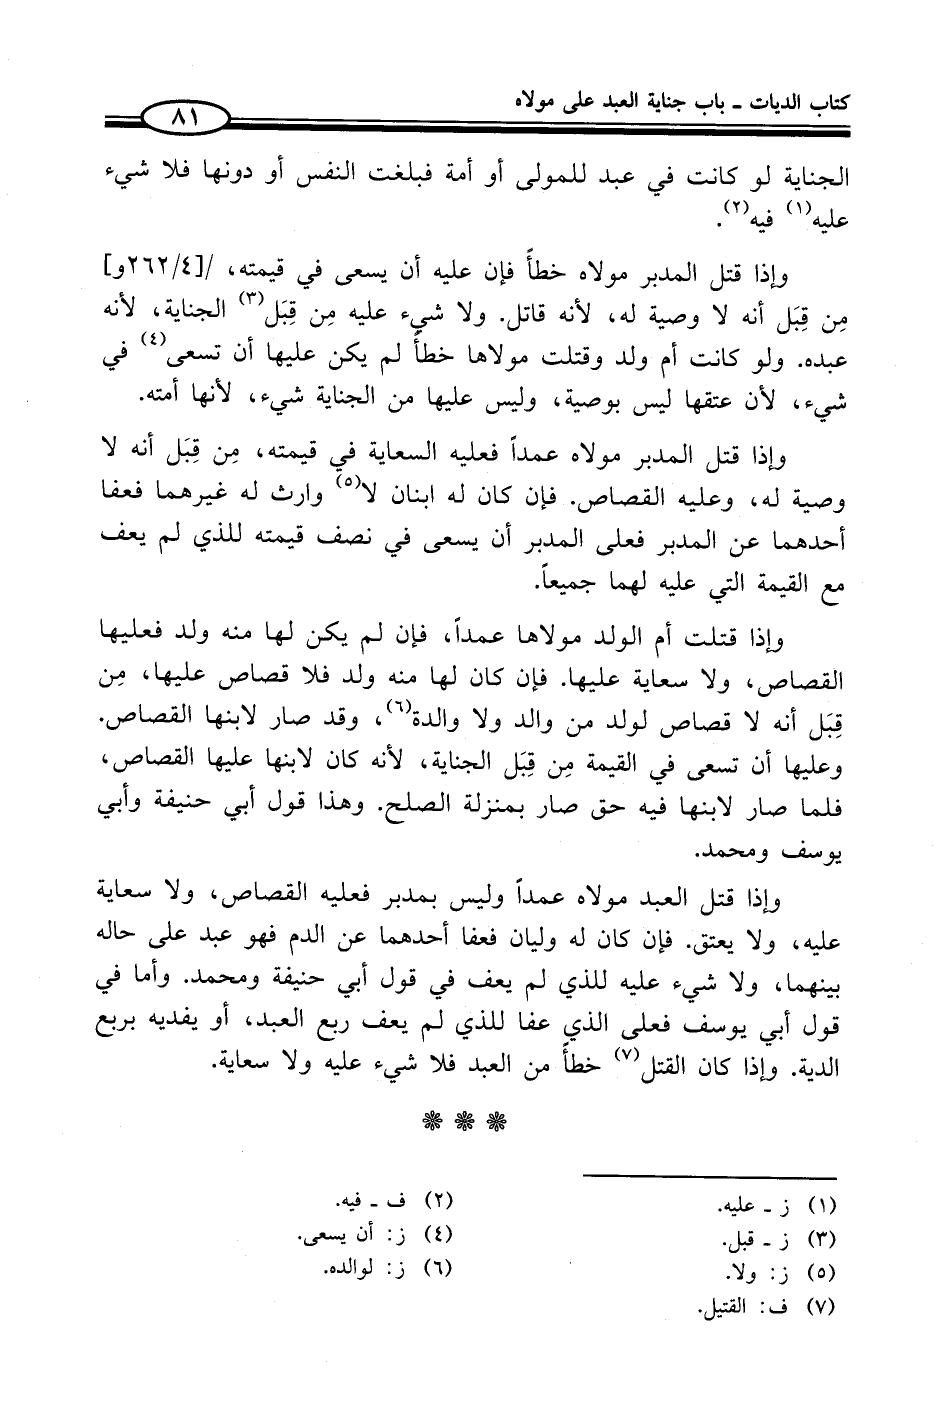 كتاب الديات ـ باب جناية العبد على مولاه
٨١
الجناية لو كانت في عبد للمولى أو أمة فبلغت النفس أو دونها فلا شيء
عليه(١) فيه(٢).
وإذا قتل المدبر مولاه خطأً فإن عليه أن يسعى في قيمته، /[٢٦٢/٤و]
مِن قِبَل أنه لا وصية له، لأنه قاتل. ولا شيء عليه مِن قِبَل(٣) الجناية، لأنه
عبده. ولو كانت أم ولد وقتلت مولاها خطأً لم يكن عليها أن تسعى(٤) في
شيء، لأن عتقها ليس بوصية، وليس عليها من الجناية شيء، لأنها أمته.
وإذا قتل المدبر مولاه عمداً فعليه السعاية في قيمته، مِن قِبَل أنه لا
وصية له، وعليه القصاص. فإن كان له ابنان لا(٥) وارث له غيرهما فعفا
أحدهما عن المدبر فعلى المدبر أن يسعى في نصف قيمته للذي لم يعف
مع القيمة التي عليه لهما جميعاً.
وإذا قتلت أم الولد مولاها عمداً، فإن لم يكن لها منه ولد فعليها
القصاص، ولا سعاية عليها. فإن كان لها منه ولد فلا قصاص عليها، مِن
قِبَل أنه لا قصاص لولد من والد ولا والدة(٦)، وقد صار لابنها القصاص.
وعليها أن تسعى في القيمة مِن قِبَل الجناية، لأنه كان لابنها عليها القصاص،
فلما صار لابنها فيه حق صار بمنزلة الصلح. وهذا قول أبي حنيفة وأبي
يوسف ومحمد.
وإذا قتل العبد مولاه عمداً وليس بمدبر فعليه القصاص، ولا سعاية
عليه، ولا يعتق. فإن كان له وليان فعفا أحدهما عن الدم فهو عبد على حاله
بينهما، ولا شيء عليه للذي لم يعف في قول أبي حنيفة ومحمد. وأما في
قول أبي يوسف فعلى الذي عفا للذي لم يعف ربع العبد، أو يفديه بربع
الدية. وإذا كان القتل(٧) خطأً من العبد فلا شيء عليه ولا سعاية.
(١) ز ـ عليه.
(٢) ف ـ فيه.
(٣) ز ـ قبل.
(٤) ز: أن يسعى.
(٥) ز: ولا.
(٦) ز: لوالده.
(٧) ف: القتيل.